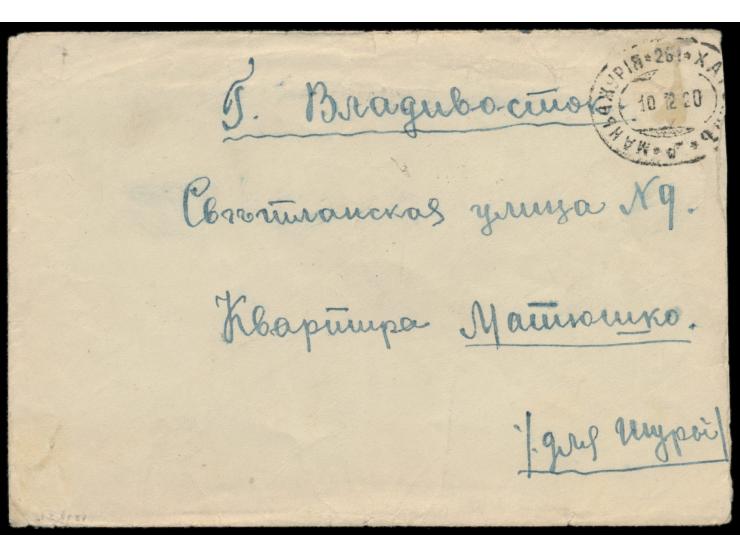 Г. Владивосток
Свѣтланская улица N 9.
Квартира Матюшко.
/для Шуры/
МАНЬЧЖУРІЯ * 261 * ХАРБИНЪ * р *
10 12 20